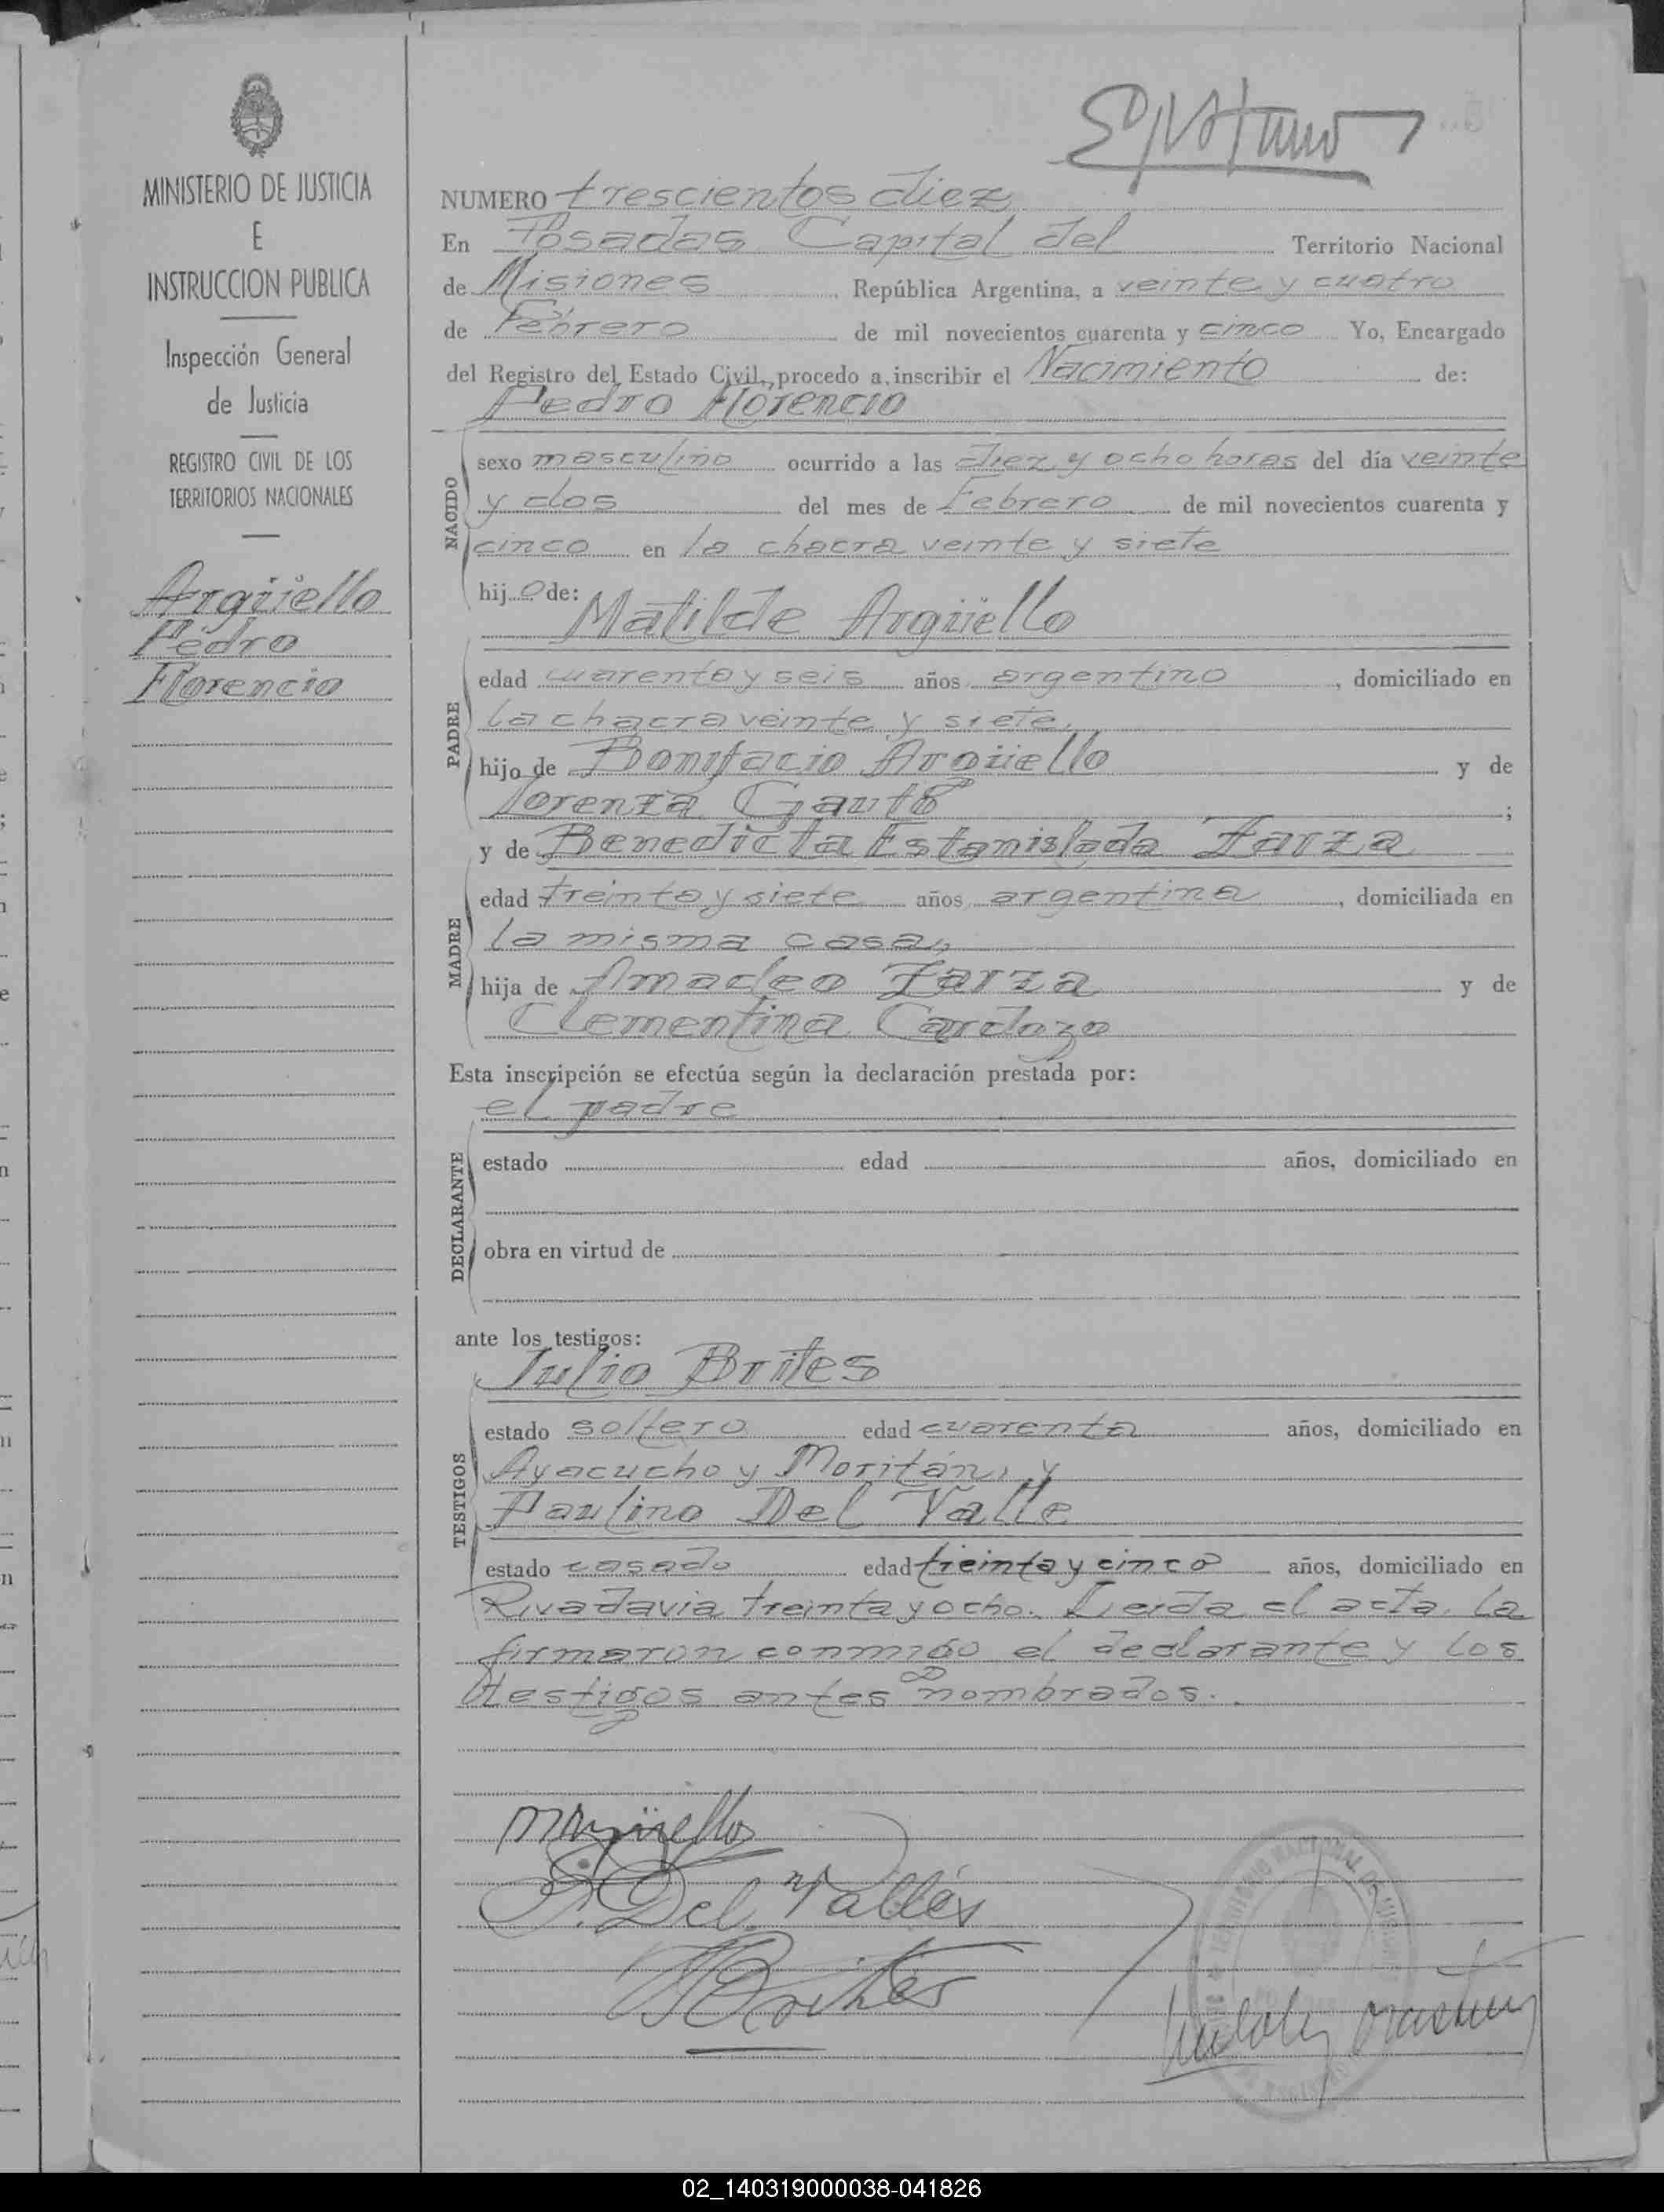 MINISTERIO DE JUSTICIA
E
INSTRUCCION PUBLICA
Inspección General
de Justicia
REGISTRO CIVIL DE LOS
TERRITORIOS NACIONALES
Argüello
Pedro
Florencio
NUMERO trescientos diez
En Posadas Capital del Territorio Nacional
de Misiones República Argentina, a veinte y cuatro
de Febrero de mil novecientos cuarenta y cinco Yo, Encargado
del Registro del Estado Civil, procedo a inscribir el Nacimiento de:
Pedro Florencio
NACIDO
sexo masculino ocurrido a las diez y ocho horas del día veinte
y dos del mes de Febrero de mil novecientos cuarenta y
cinco en la chacra veinte y siete
hijo de:
Matilde Argüello
PADRE
edad cuarenta y seis años argentino, domiciliado en
la chacra veinte y siete,
hijo de Bonifacio Argüello y de
Lorenza Gauto;
y de Benedicta Estanislada Zarza
MADRE
edad treinta y siete años argentina, domiciliada en
la misma casa,
hija de Amadeo Zarza y de
Clementina Cardozo
Esta inscripción se efectúa según la declaración prestada por:
el padre
DECLARANTE
estado edad años, domiciliado en
obra en virtud de
ante los testigos:
Julio Brites
TESTIGOS
estado soltero edad cuarenta años, domiciliado en
Ayacucho y Moritán, y
Paulino Del Valle
estado casado edad treinta y cinco años, domiciliado en
Rivadavia treinta y ocho. Leída el acta, la
firmaron conmigo el declarante y los
testigos antes nombrados.
MArgüello
P. Del Valle
JBrites
02_140319000038-041826